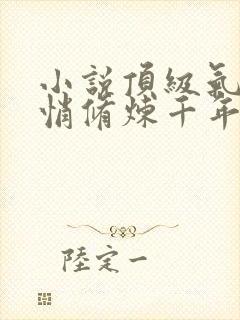 小說頂級氣
悄脩煉千年
陸定一